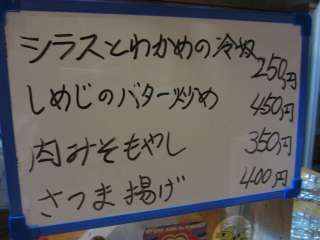 シラスとわかめの冷奴 250円
しめじのバター炒め 450円
肉みそもやし 350円
さつま揚げ 400円